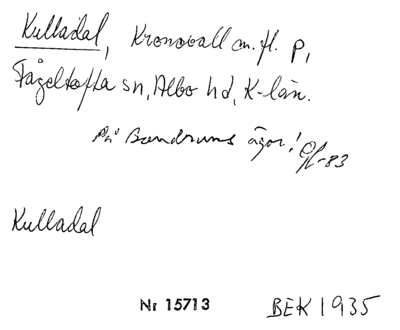 Kulladal, Kronovall m. fl. P,
Fågeltofta sn, Albo hd, K-län.
På Bondrums ägor!
-83
Kulladal
Nr 15713
BEK 1935